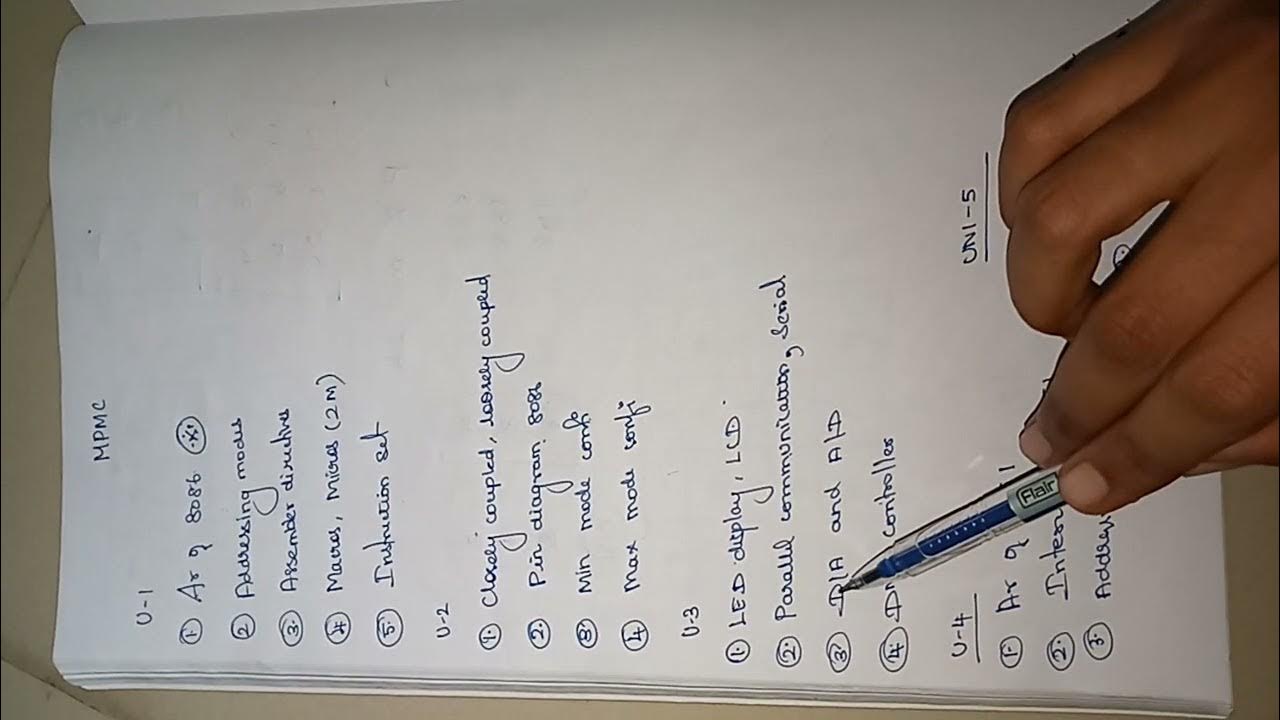 MPMC
U-1
① Ar of 8086 *
② Addressing modes
③ Assember directives
④ Macros, Micros (2M)
⑤ Instruction set
U-2
① Closely coupled, loosely coupled
② Pin diagram. 8086
③ Min mode conf
④ Max mode confi
U-3
① LED display, LCD.
② Parallel communication, Serial
③ D/A and A/D
④ controller
U-4
① Ar of
②
③
UNI-5
Flair